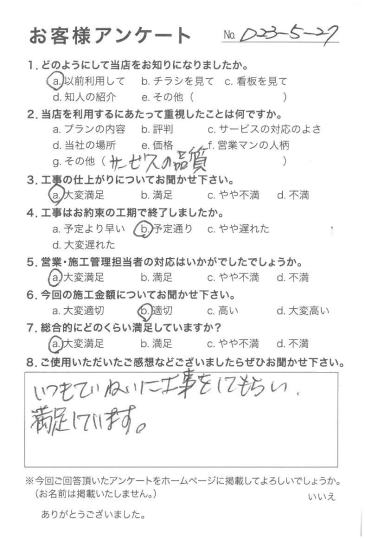 お客様アンケート No. D23-5-27
1. どのようにして当店をお知りになりましたか。
a. 以前利用して b. チラシを見て c. 看板を見て
d. 知人の紹介 e. その他（ ）
2. 当店を利用するにあたって重視したことは何ですか。
a. プランの内容 b. 評判 c. サービスの対応のよさ
d. 当社の場所 e. 価格 f. 営業マンの人柄
g. その他（ サービスの品質
3. 工事の仕上がりについてお聞かせ下さい。
a. 大変満足 b. 満足 c. やや不満 d. 不満
4. 工事はお約束の工期で終了しましたか。
a. 予定より早い b. 予定通り c. やや遅れた
d. 大変遅れた
5. 営業・施工管理担当者の対応はいかがでしたでしょうか。
a. 大変満足 b. 満足 c. やや不満 d. 不満
6. 今回の施工金額についてお聞かせ下さい。
a. 大変適切 b. 適切 c. 高い d. 大変高い
7. 総合的にどのくらい満足していますか？
a. 大変満足 b. 満足 c. やや不満 d. 不満
8. ご使用いただいたご感想などございましたらぜひお聞かせ下さい。
いつもていねいに工事をしてもらい、
満足しています。
※今回ご回答頂いたアンケートをホームページに掲載してよろしいでしょうか。
（お名前は掲載いたしません。） いいえ
ありがとうございました。